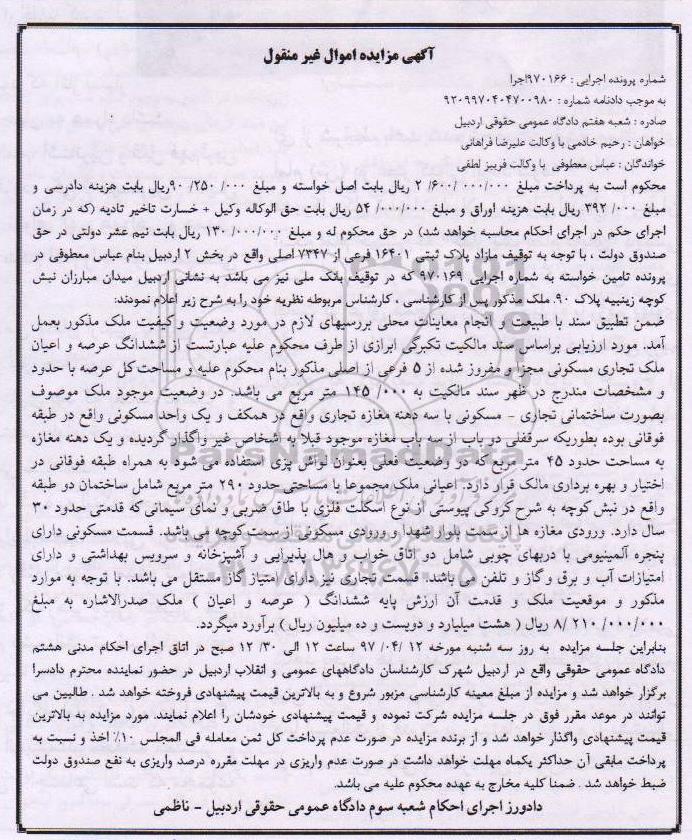 آگهی مزایده اموال غیر منقول
شماره پرونده اجرایی : ۹۷۰۱۶۶اجرا
به موجب دادنامه شماره : ۹۲۰۹۹۷۰۴۰۴۷۰۰۹۸۰
صادره : شعبه هفتم دادگاه عمومی حقوقی اردبیل
خواهان : رحیم خادمی با وکالت علیرضا فراهانی
خواندگان : عباس معطوفی با وکالت فریبز لطفی
محکوم است به پرداخت مبلغ ۰۰۰/۰۰۰/ ۶۰۰/ ۲ ریال بابت اصل خواسته و مبلغ ۰۰۰/ ۲۵۰/ ۹۰ریال بابت هزینه دادرسی و
مبلغ ۰۰۰/ ۳۹۲ ریال بابت هزینه اوراق و مبلغ ۰۰۰/۰۰۰/ ۵۴ ریال بابت حق الوکاله وکیل + خسارت تاخیر تادیه (که در زمان
اجرای حکم در اجرای احکام محاسبه خواهد شد) در حق محکوم له و مبلغ ۰۰۰/۰۰۰/ ۱۳۰ ریال بابت نیم عشر دولتی در حق
صندوق دولت ، با توجه به توقیف مازاد پلاک ثبتی ۱۶۴۰۱ فرعی از ۷۳۴۷ اصلی واقع در بخش ۲ اردبیل بنام عباس معطوفی در
پرونده تامین خواسته به شماره اجرایی ۹۷۰۱۶۹ که در توقیف بانک ملی نیز می باشد به نشانی اردبیل میدان مبارزان نبش
کوچه زینبیه پلاک ۹۰. ملک مذکور پس از کارشناسی ، کارشناس مربوطه نظریه خود را به شرح زیر اعلام نمودند:
ضمن تطبیق سند با طبیعت و انجام معاینات محلی بررسیهای لازم در مورد وضعیت و کیفیت ملک مذکور بعمل
آمد. مورد ارزیابی براساس سند مالکیت تکبرگی ابرازی از طرف محکوم علیه عبارتست از ششدانگ عرصه و اعیان
ملک تجاری مسکونی مجزا و مفروز شده از ۵ فرعی از اصلی مذکور بنام محکوم علیه و مساحت کل عرصه با حدود
و مشخصات مندرج در ظهر سند مالکیت به ۰۰۰/ ۱۴۵ متر مربع می باشد. در وضعیت موجود ملک موصوف
بصورت ساختمانی تجاری - مسکونی با سه دهنه مغازه تجاری واقع در همکف و یک واحد مسکونی واقع در طبقه
فوقانی بوده بطوریکه سرقفلی دو باب از سه باب مغازه موجود قبلا به اشخاص غیر واگذار گردیده و یک دهنه مغازه
به مساحت حدود ۴۵ متر مربع که در وضعیت فعلی بعنوان لواش پزی استفاده می شود به همراه طبقه فوقانی در
اختیار و بهره برداری مالک قرار دارد. اعیانی ملک مجموعا با مساحتی حدود ۲۹۰ متر مربع شامل ساختمان دو طبقه
واقع در نبش کوچه به شرح کروکی پیوستی از نوع اسکلت فلزی با طاق ضربی و نمای سیمانی که قدمتی حدود ۳۰
سال دارد. ورودی مغازه ها از سمت بلوار شهدا و ورودی مسکونی از سمت کوچه می باشد. قسمت مسکونی دارای
پنجره آلمینیومی با دربهای چوبی شامل دو اتاق خواب و هال پذیرایی و آشپزخانه و سرویس بهداشتی و دارای
امتیازات آب و برق و گاز و تلفن می باشد. قسمت تجاری نیز دارای امتیاز گاز مستقل می باشد. با توجه به موارد
مذکور و موقعیت ملک و قدمت آن ارزش پایه ششدانگ ( عرصه و اعیان ) ملک صدرالاشاره به مبلغ
۰۰۰/۰۰۰/ ۲۱۰ /۸ ریال ( هشت میلیارد و دویست و ده میلیون ریال ) برآورد میگردد.
بنابراین جلسه مزایده به روز سه شنبه مورخه ۱۲ /۰۴/ ۹۷ ساعت ۱۲ الی ۳۰/ ۱۲ صبح در اتاق اجرای احکام مدنی هشتم
دادگاه عمومی حقوقی واقع در اردبیل شهرک کارشناسان دادگاههای عمومی و انقلاب اردبیل در حضور نماینده محترم دادسرا
برگزار خواهد شد و مزایده از مبلغ معینه کارشناسی مزبور شروع و به بالاترین قیمت پیشنهادی فروخته خواهد شد . طالبین می
توانند در موعد مقرر فوق در جلسه مزایده شرکت نموده و قیمت پیشنهادی خودشان را اعلام نمایند. مورد مزایده به بالاترین
قیمت پیشنهادی واگذار خواهد شد و از برنده مزایده در صورت عدم پرداخت کل ثمن معامله فی المجلس ۱۰٪ اخذ و نسبت به
پرداخت مابقی آن حداکثر یکماه مهلت خواهد داشت در صورت عدم واریزی در مهلت مقرره درصد واریزی به نفع صندوق دولت
ضبط خواهد شد . ضمنا کلیه مخارج به عهده محکوم علیه می باشد.
دادورز اجرای احکام شعبه سوم دادگاه عمومی حقوقی اردبیل - ناظمی
ParsNamadData